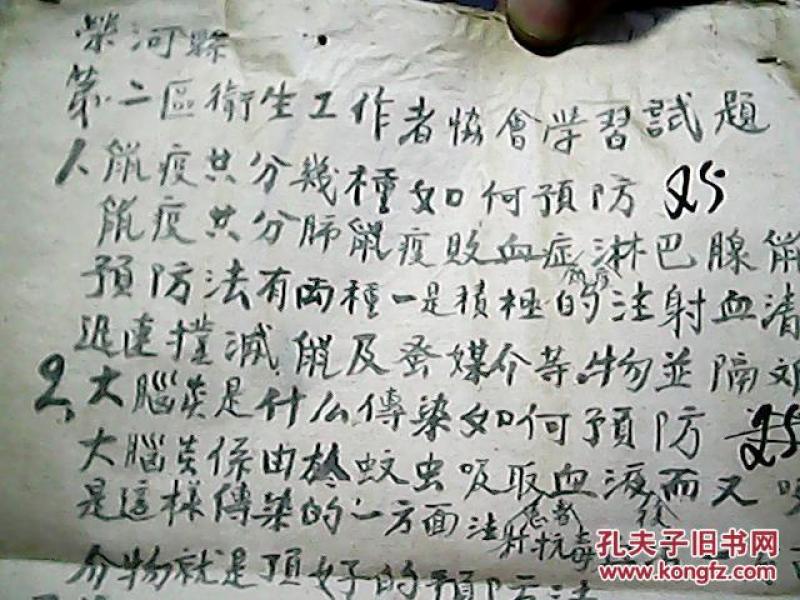 榮河縣
第二區衛生工作者協會学習試題
1、鼠疫共分幾種如何預防 25
鼠疫共分肺鼠疫敗血症淋巴腺鼠
預防法有両種一是積極的注射血清
迅速撲滅鼠及蚤媒介等物並隔
2、大腦炎是什么傳染如何預防 25
大腦炎係由於蚊虫吸取血液而又吸
是這樣傳染的一方面注射抗毒
患者 後
介物就是頂好的預防法
孔夫子旧书网
www.kongfz.com